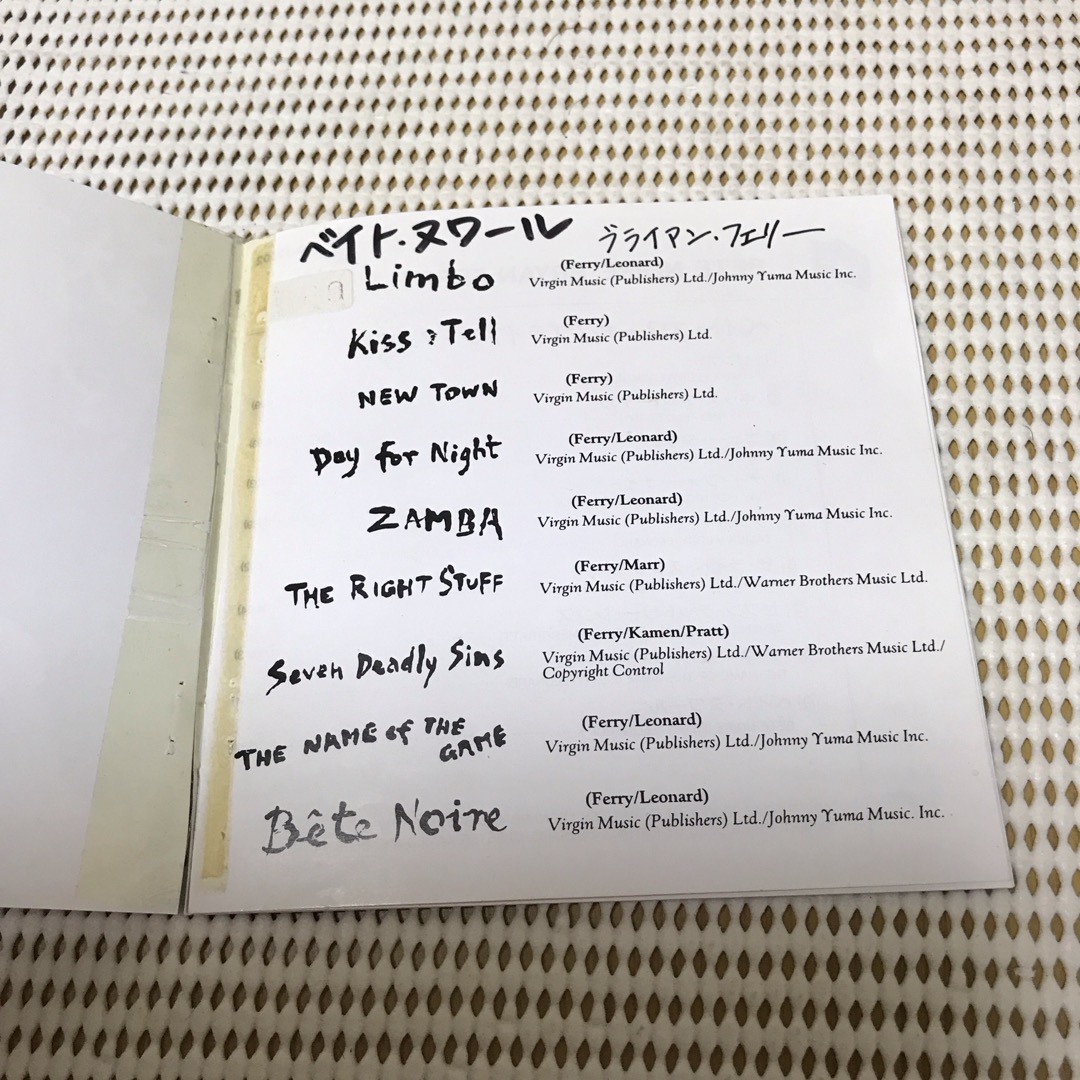 ベイト・ヌワール ブライアン・フェリー
Limbo (Ferry/Leonard)
Virgin Music (Publishers) Ltd./Johnny Yuma Music Inc.
Kiss & Tell (Ferry)
Virgin Music (Publishers) Ltd.
NEW TOWN (Ferry)
Virgin Music (Publishers) Ltd.
Day for Night (Ferry/Leonard)
Virgin Music (Publishers) Ltd./Johnny Yuma Music Inc.
ZAMBA (Ferry/Leonard)
Virgin Music (Publishers) Ltd./Johnny Yuma Music Inc.
THE RIGHT STUFF (Ferry/Marr)
Virgin Music (Publishers) Ltd./Warner Brothers Music Ltd.
Seven Deadly Sins (Ferry/Kamen/Pratt)
Virgin Music (Publishers) Ltd./Warner Brothers Music Ltd./
Copyright Control
THE NAME of THE
GAME (Ferry/Leonard)
Virgin Music (Publishers) Ltd./Johnny Yuma Music Inc.
Bête Noire (Ferry/Leonard)
Virgin Music (Publishers) Ltd./Johnny Yuma Music. Inc.